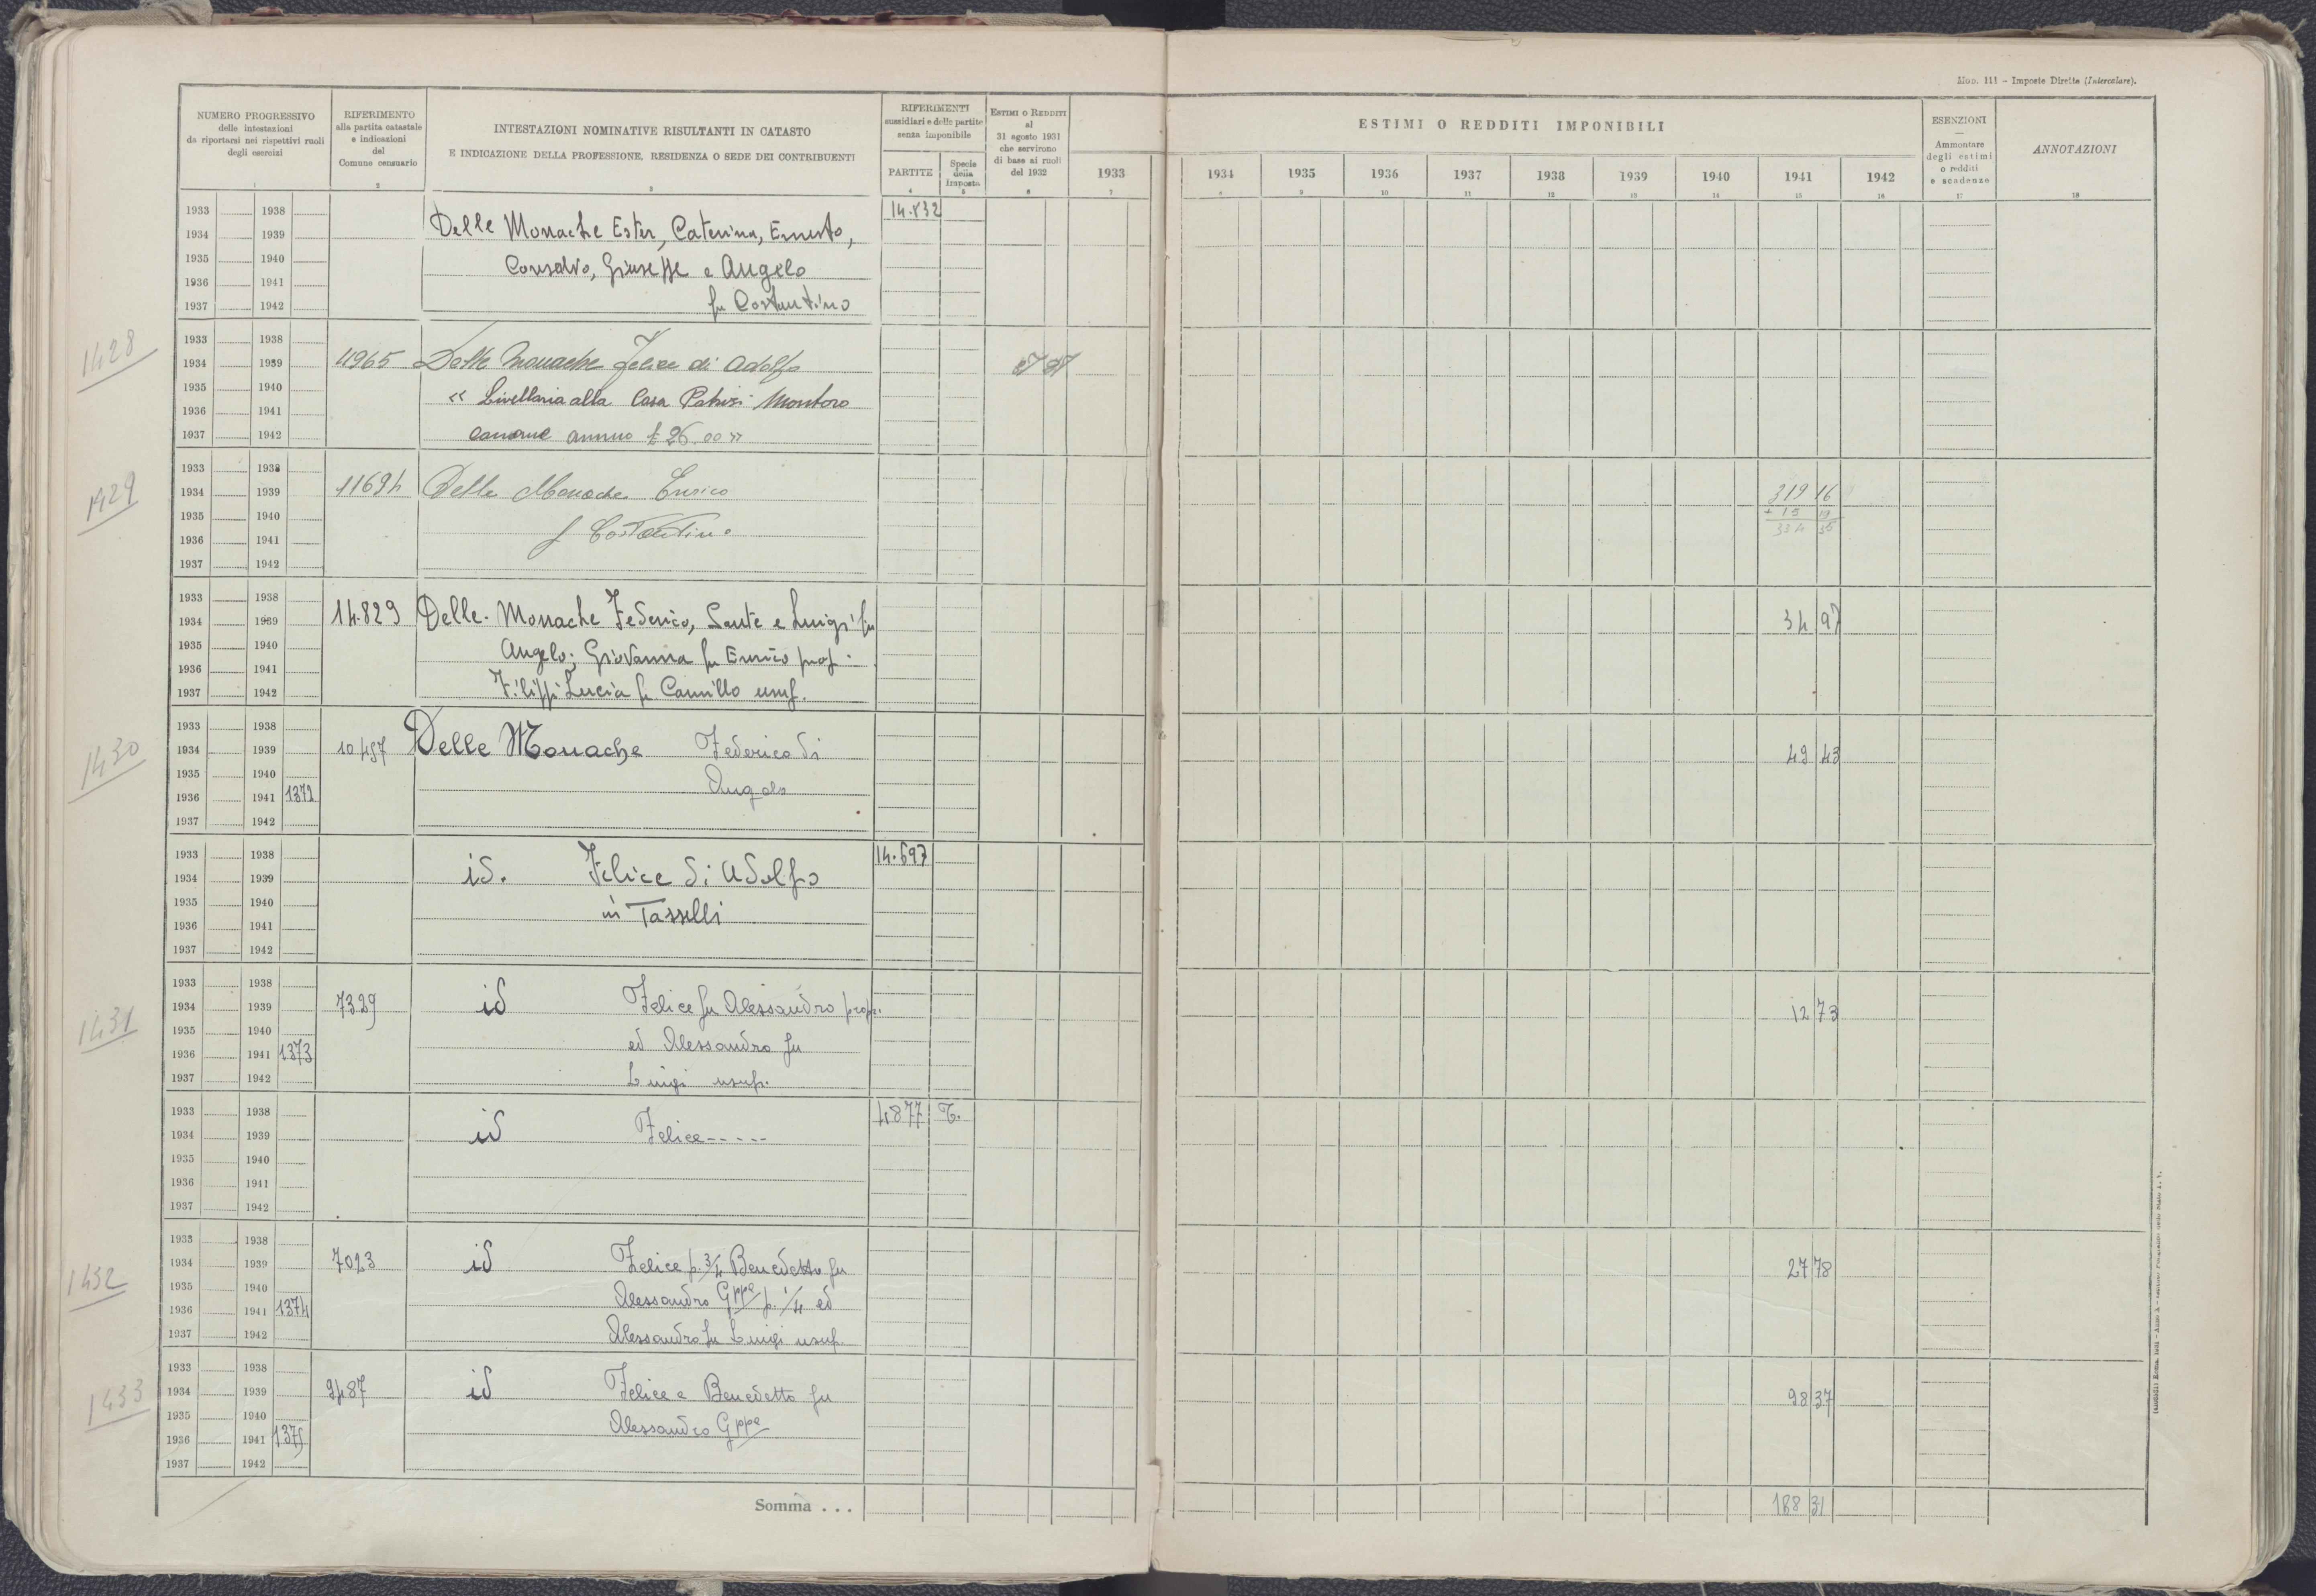 Mod. 111 - Imposte Dirette (Intercalare).
NUMERO PROGRESSIVO delle intestazioni da riportarsi nei rispettivi ruoli degli esercizi
RIFERIMENTO alla partita catastale e indicazioni del Comune censuario
INTESTAZIONI NOMINATIVE RISULTANTI IN CATASTO
E INDICAZIONE DELLA PROFESSIONE, RESIDENZA O SEDE DEI CONTRIBUENTI
RIFERIMENTI sussidiari e delle partite senza imponibile
PARTITE
Specie della Imposta
ESTIMI O REDDITI al 31 agosto 1931 che servirono di base ai ruoli del 1932
ESTIMI O REDDITI IMPONIBILI
1933 1934 1935 1936 1937 1938 1939 1940 1941 1942
ESENZIONI
Ammontare degli estimi o redditi e scadenze
ANNOTAZIONI
1 2 3 4 5 6 7 8 9 10 11 12 13 14 15 16 17 18
1933 1938 14.832
1934 1939 Delle Monache Ester, Caterina, Ernesto,
1935 1940 Consalvo, Giuseppe e Angelo
1936 1941
1937 1942 fu Costantino
1428
1933 1938
1934 1939 4965 Delle Monache Felice di Adolfo
1935 1940
1936 1941 « Livellaria alla Casa Patrizi Montoro
1937 1942 canone annuo £ 26.00 »
1429
1933 1938
1934 1939 11694 Delle Monache Enrico 319 16
1935 1940 f Costantino + 15 19
1936 1941 334 35
1937 1942
1933 1938
1934 1939 14.829 Delle Monache Federico, Sante e Luigi fu 34 97
1935 1940 Angelo; Giovanna fu Enrico prop.
1936 1941
1937 1942 Filippi Lucia fu Camillo usuf.
1430
1933 1938
1934 1939 10497 Delle Monache Federico di 49 43
1935 1940 Angelo
1936 1941 1372
1937 1942
1933 1938 14.697
1934 1939 id. Felice di Adolfo
1935 1940 in Tasselli
1936 1941
1937 1942
1431
1933 1938
1934 1939 7329 id Felice fu Alessandro propr. 12 73
1935 1940
1936 1941 1373 ed Alessandro fu
1937 1942 Luigi usuf.
1933 1938 4877 T.
1934 1939 id Felice-----
1935 1940
1936 1941
1937 1942
1432
1933 1938
1934 1939 7023 id Felice p. 3/4 Benedetto fu 27 78
1935 1940
1936 1941 1374 Alessandro Gppe p. 1/4 ed
1937 1942 Alessandro fu Luigi usuf.
1433
1933 1938
1934 1939 9487 id Felice e Benedetto fu 98 37
1935 1940 Alessandro Gppe
1936 1941 1375
1937 1942
Somma . . . 188 31